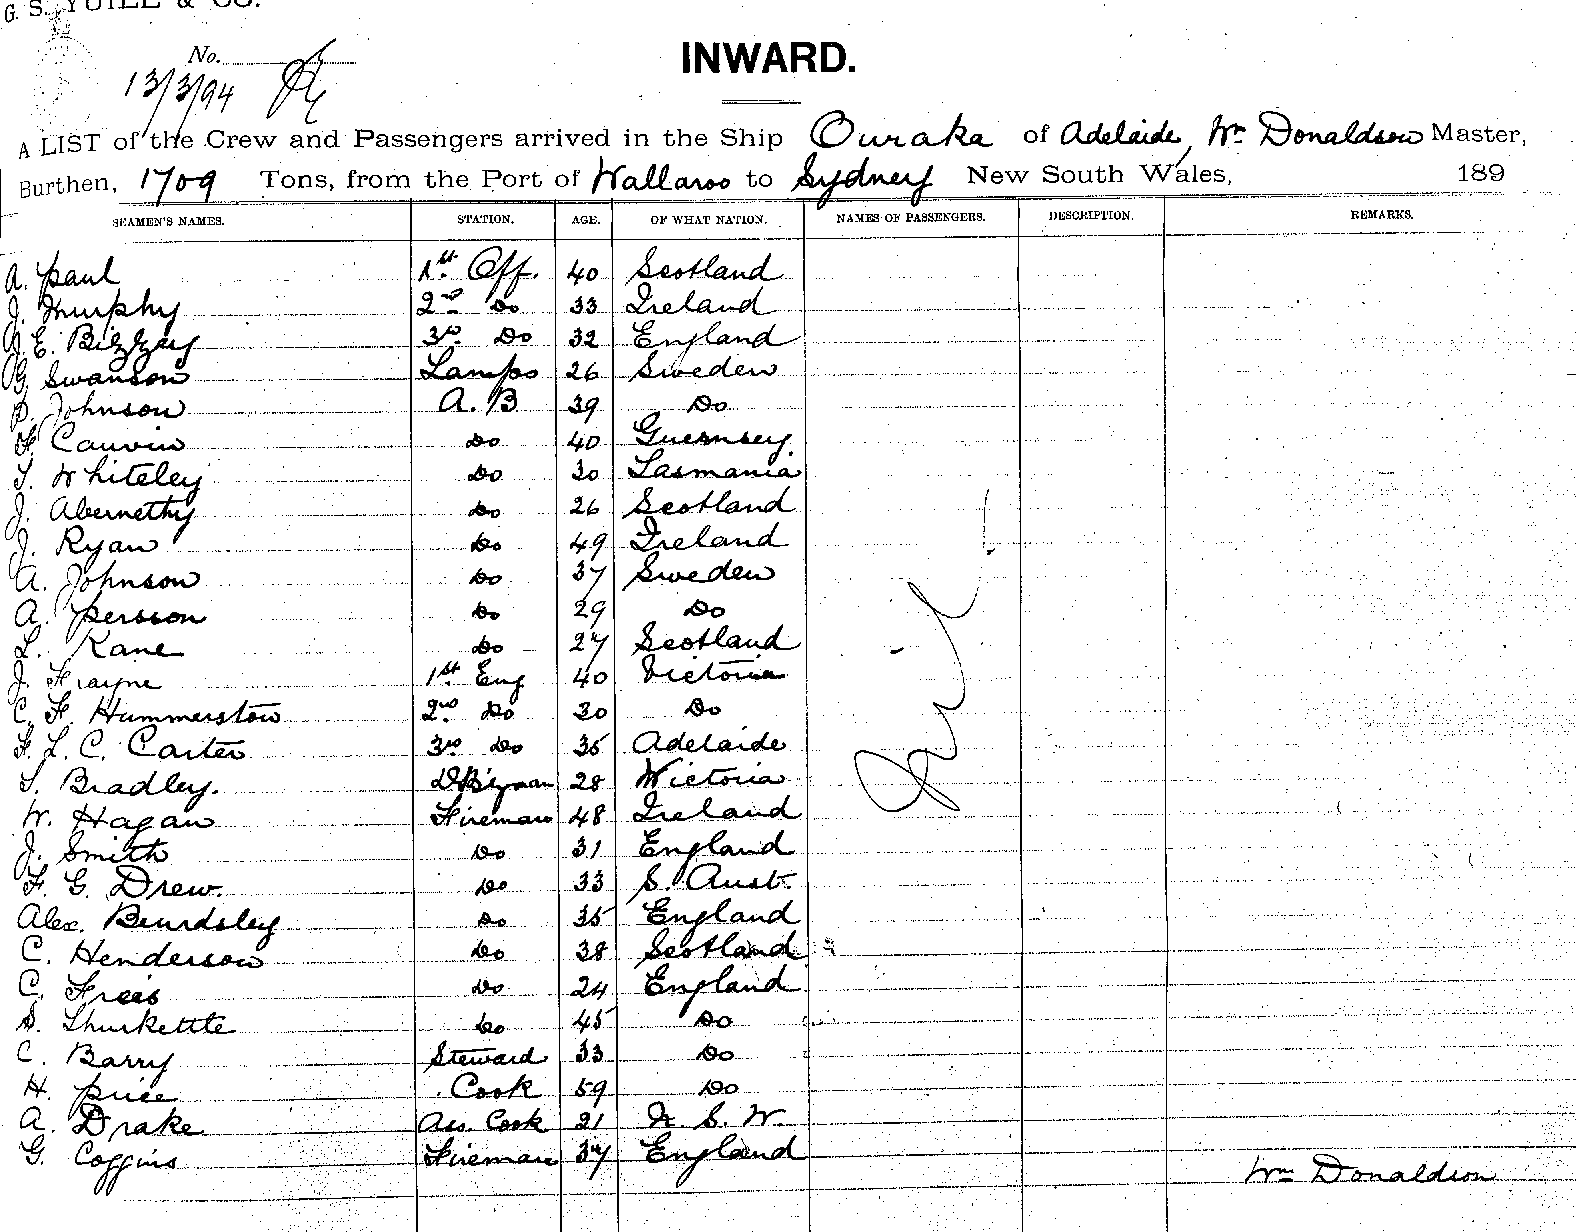 G. S. YUILL & CO.
No.
13/3/94
INWARD.
A LIST of the Crew and Passengers arrived in the Ship Ouraka of Adelaide, Wm Donaldson Master,
Burthen, 1709 Tons, from the Port of Wallaroo to Sydney New South Wales, 189
SEAMEN'S NAMES. STATION. AGE. OF WHAT NATION. NAMES OF PASSENGERS. DESCRIPTION. REMARKS.
A. Paul 1st Off. 40 Scotland
J. Murphy 2nd Do 33 Ireland
E. 3rd Do 32 England
G. Swanson Lamps 26 Sweden
P. Johnson A.B 39 Do
F. Cauvin Do 40 Guernsey
T. Whiteley Do 30 Tasmania
J. Abernethy Do 26 Scotland
J. Ryan Do 49 Ireland
A. Johnson Do 37 Sweden
A. Persson Do 29 Do
L. Kane Do 27 Scotland
J. Frayne 1st Eng 40 Victoria
C. F. Hummerston 2nd Do 30 Do
F. L. C. Carter 3rd Do 35 Adelaide
T. Bradley. 28 Victoria
W. Hagan Fireman 48 Ireland
J. Smith Do 31 England
F. G. Drew. Do 33 S. Aust.
Alex. Beurdsley Do 35 England
C. Henderson Do 38 Scotland
C. Frees Do 24 England
S. Thurkettle Do 45 Do
C. Barry Steward 33 Do
H. Price Cook 59 Do
A. Drake Ass. Cook 21 N. S. W.
G. Coggins Fireman 37 England
Wm Donaldson